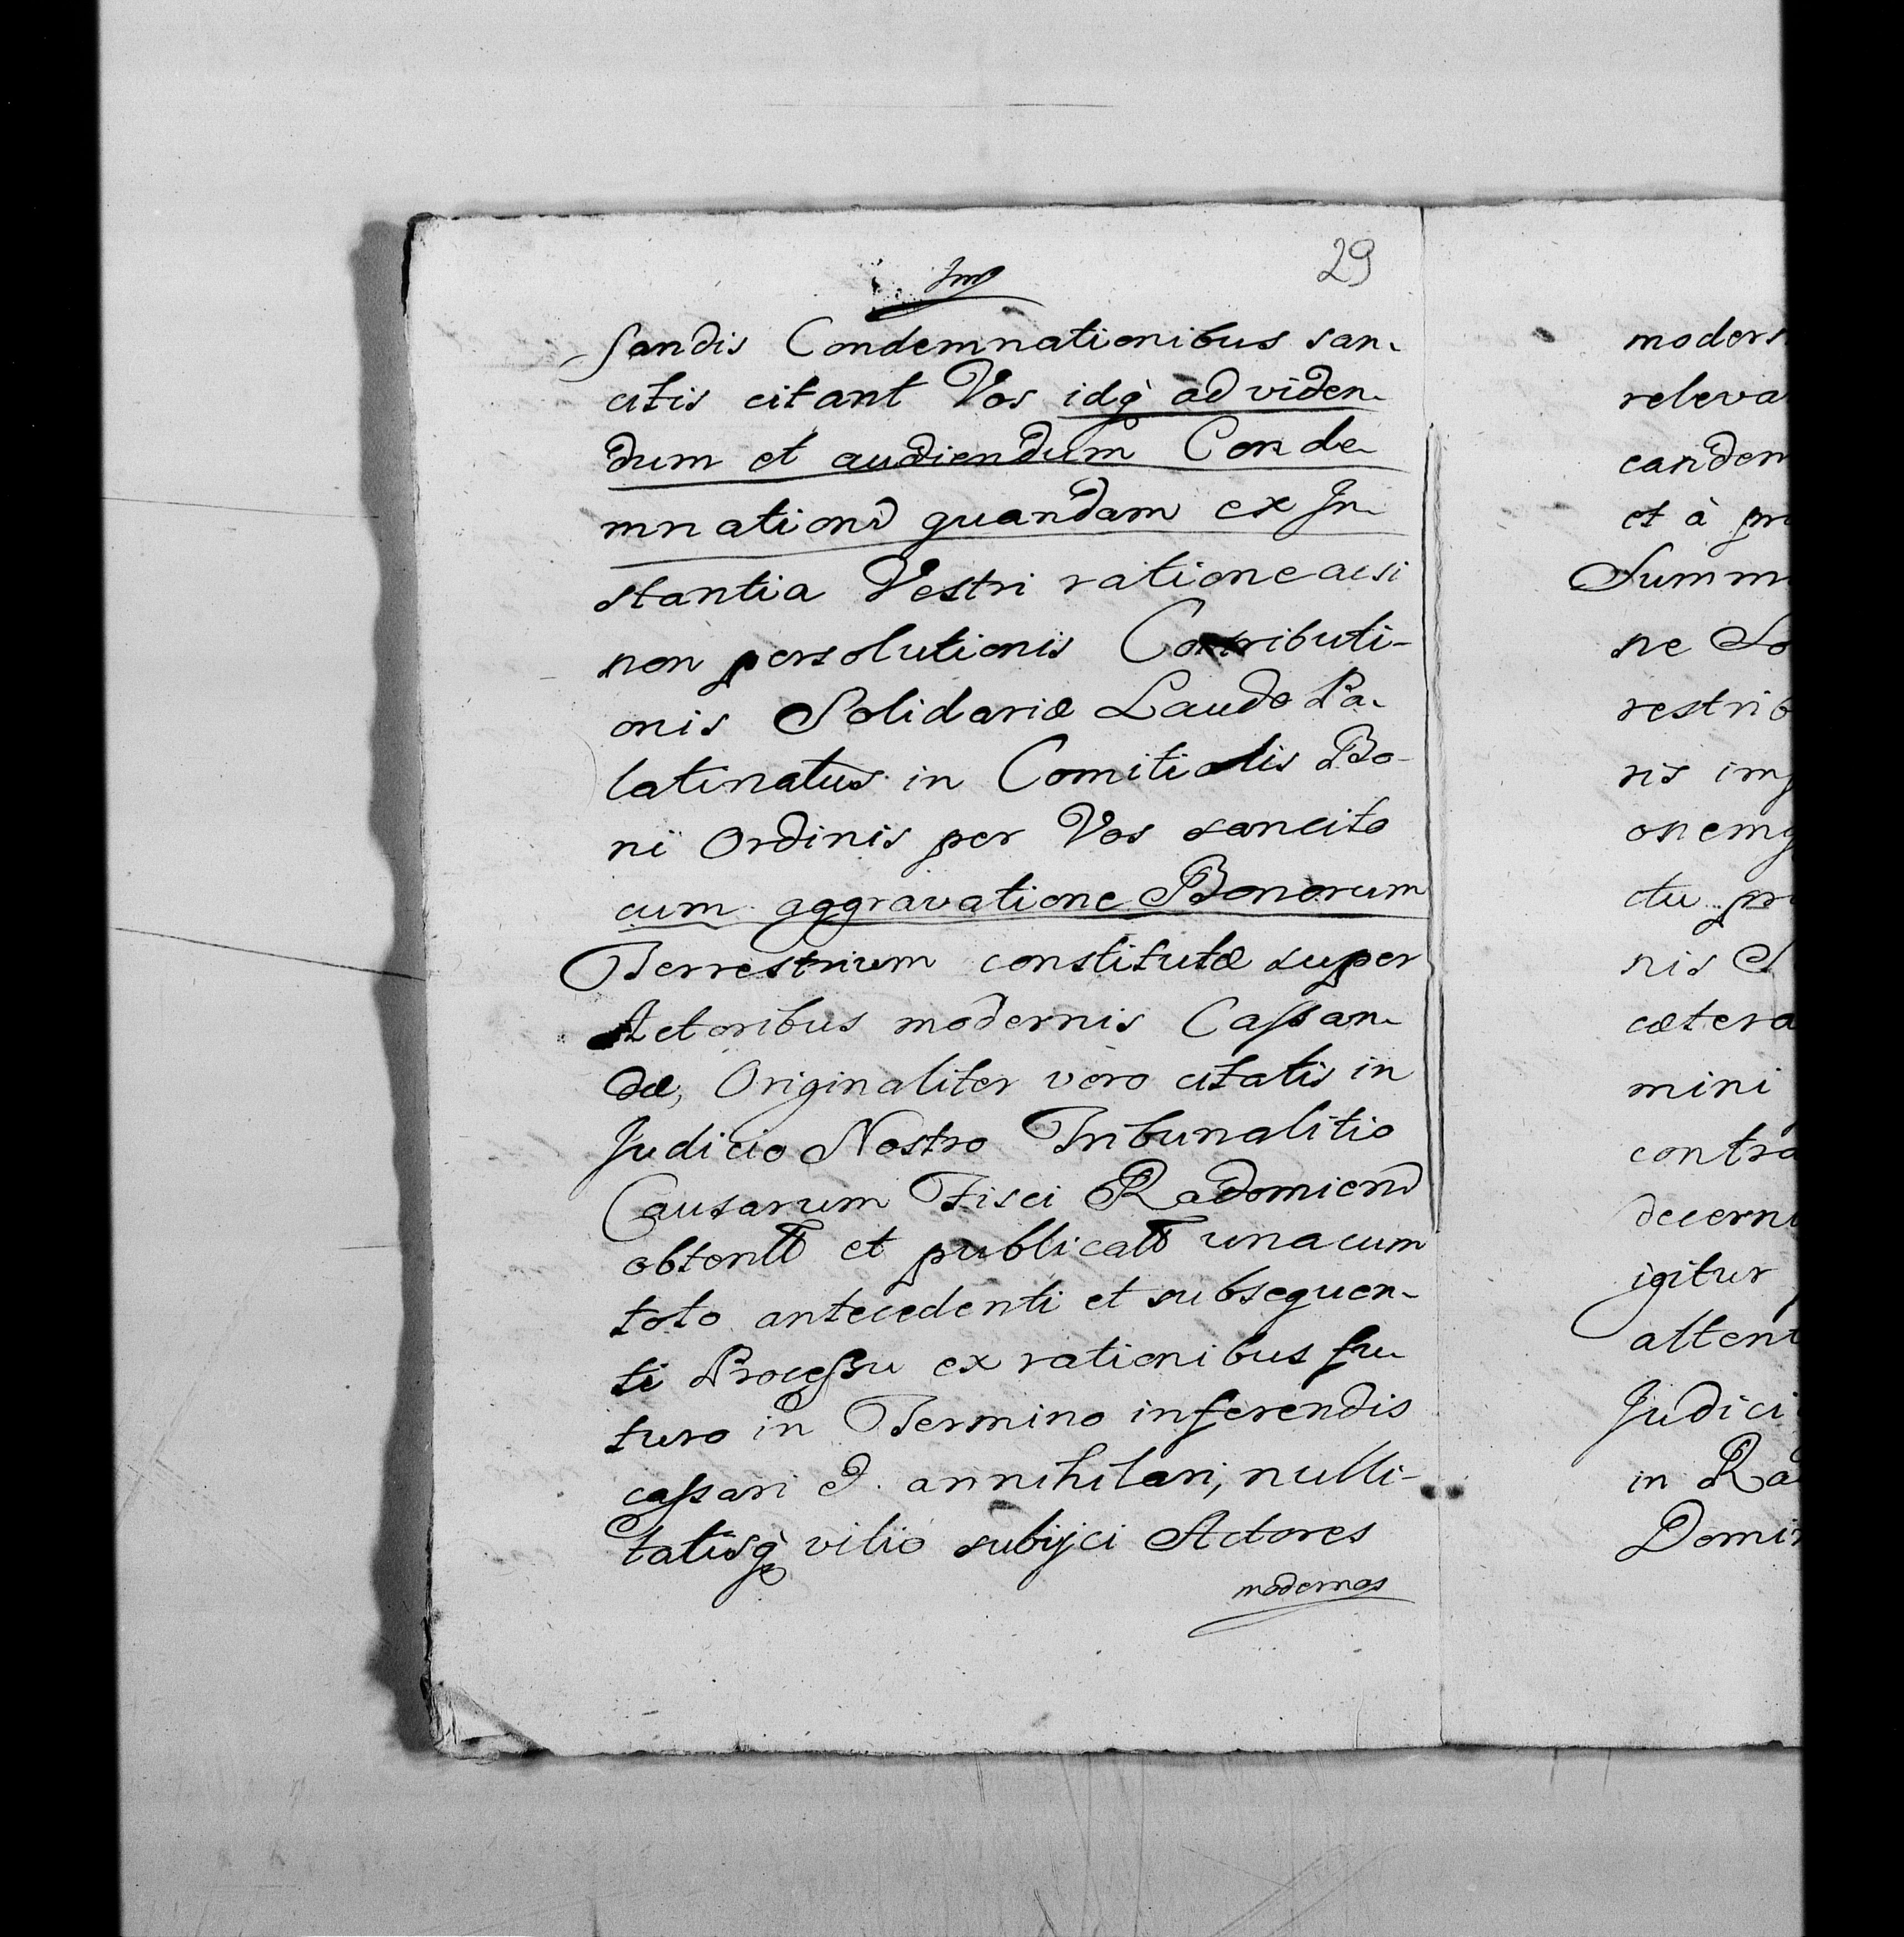 29
sandis Condemnationibus san-
citis citant Vos idq̀ ad viden-
dum et audiendum Conde-
mnationẽ quandam ex In-
stantia Vestri ratione acsi
non persolutionis Contributi-
onis Solidariæ Laudo Pa-
latinatus in Comitialis Bo-
ni Ordinis per Vos sancito
cum aggravatione Bonorum
Terrestrium constitutæ super
Actoribus modernis Cassan-
dæ, Originaliter vero citatis in
Judicio Nostro Tribunalitio
Causarum Fisci Radomiens
obtent et publicat unacum
toto antecedenti et subsequen-
ti Processu ex rationibus fu-
turo in Termino inferendis
cassari & annihilari, nulli-
tatisq̀ vitio subijci Actores
modernos
modern
releva
eandem
et à pr
Summ
ne So
restrib
ris imp
onemq
ctu pr
nis S
cætera
mini
contra
decern
igitur
attent
Judici
in Ra
Domin